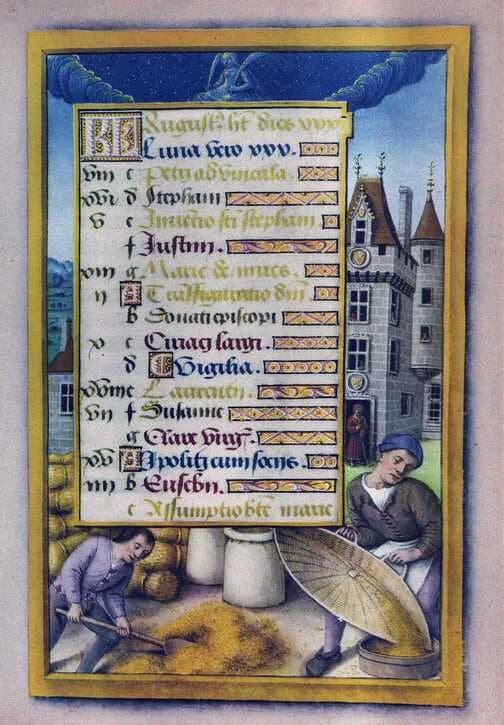 KL August9 ht dies xxxi
Luna vero xxx.
viii c Petri ad vincula.
xvi d Stephani
v e Inventio sti stephani
f Justini.
xiii g Marie de nives.
ii A Trasfiguratio dni
b Donati episcopi
x c Ciriaci largi.
d Vigilia.
xviii e Laurentii
vii f Susanne
g Clare virg.
xv A Ipoliti cum sociis.
iiii b Eusebii.
c Assumptio bte marie